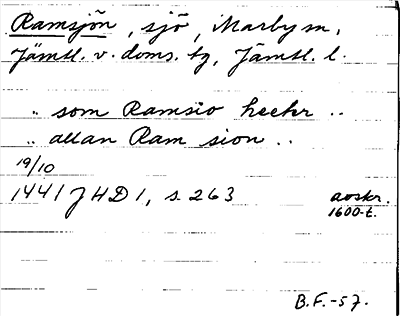 Ramsjön, sjö, Marby sn,
Jämtl. v. doms. tg, Jämtl. l.
.. som Ramsio heehr ..
.. allan Ram sion ..
19/10
1441 JHD 1, s. 263 avskr.
1600-t.
B.F.-57.